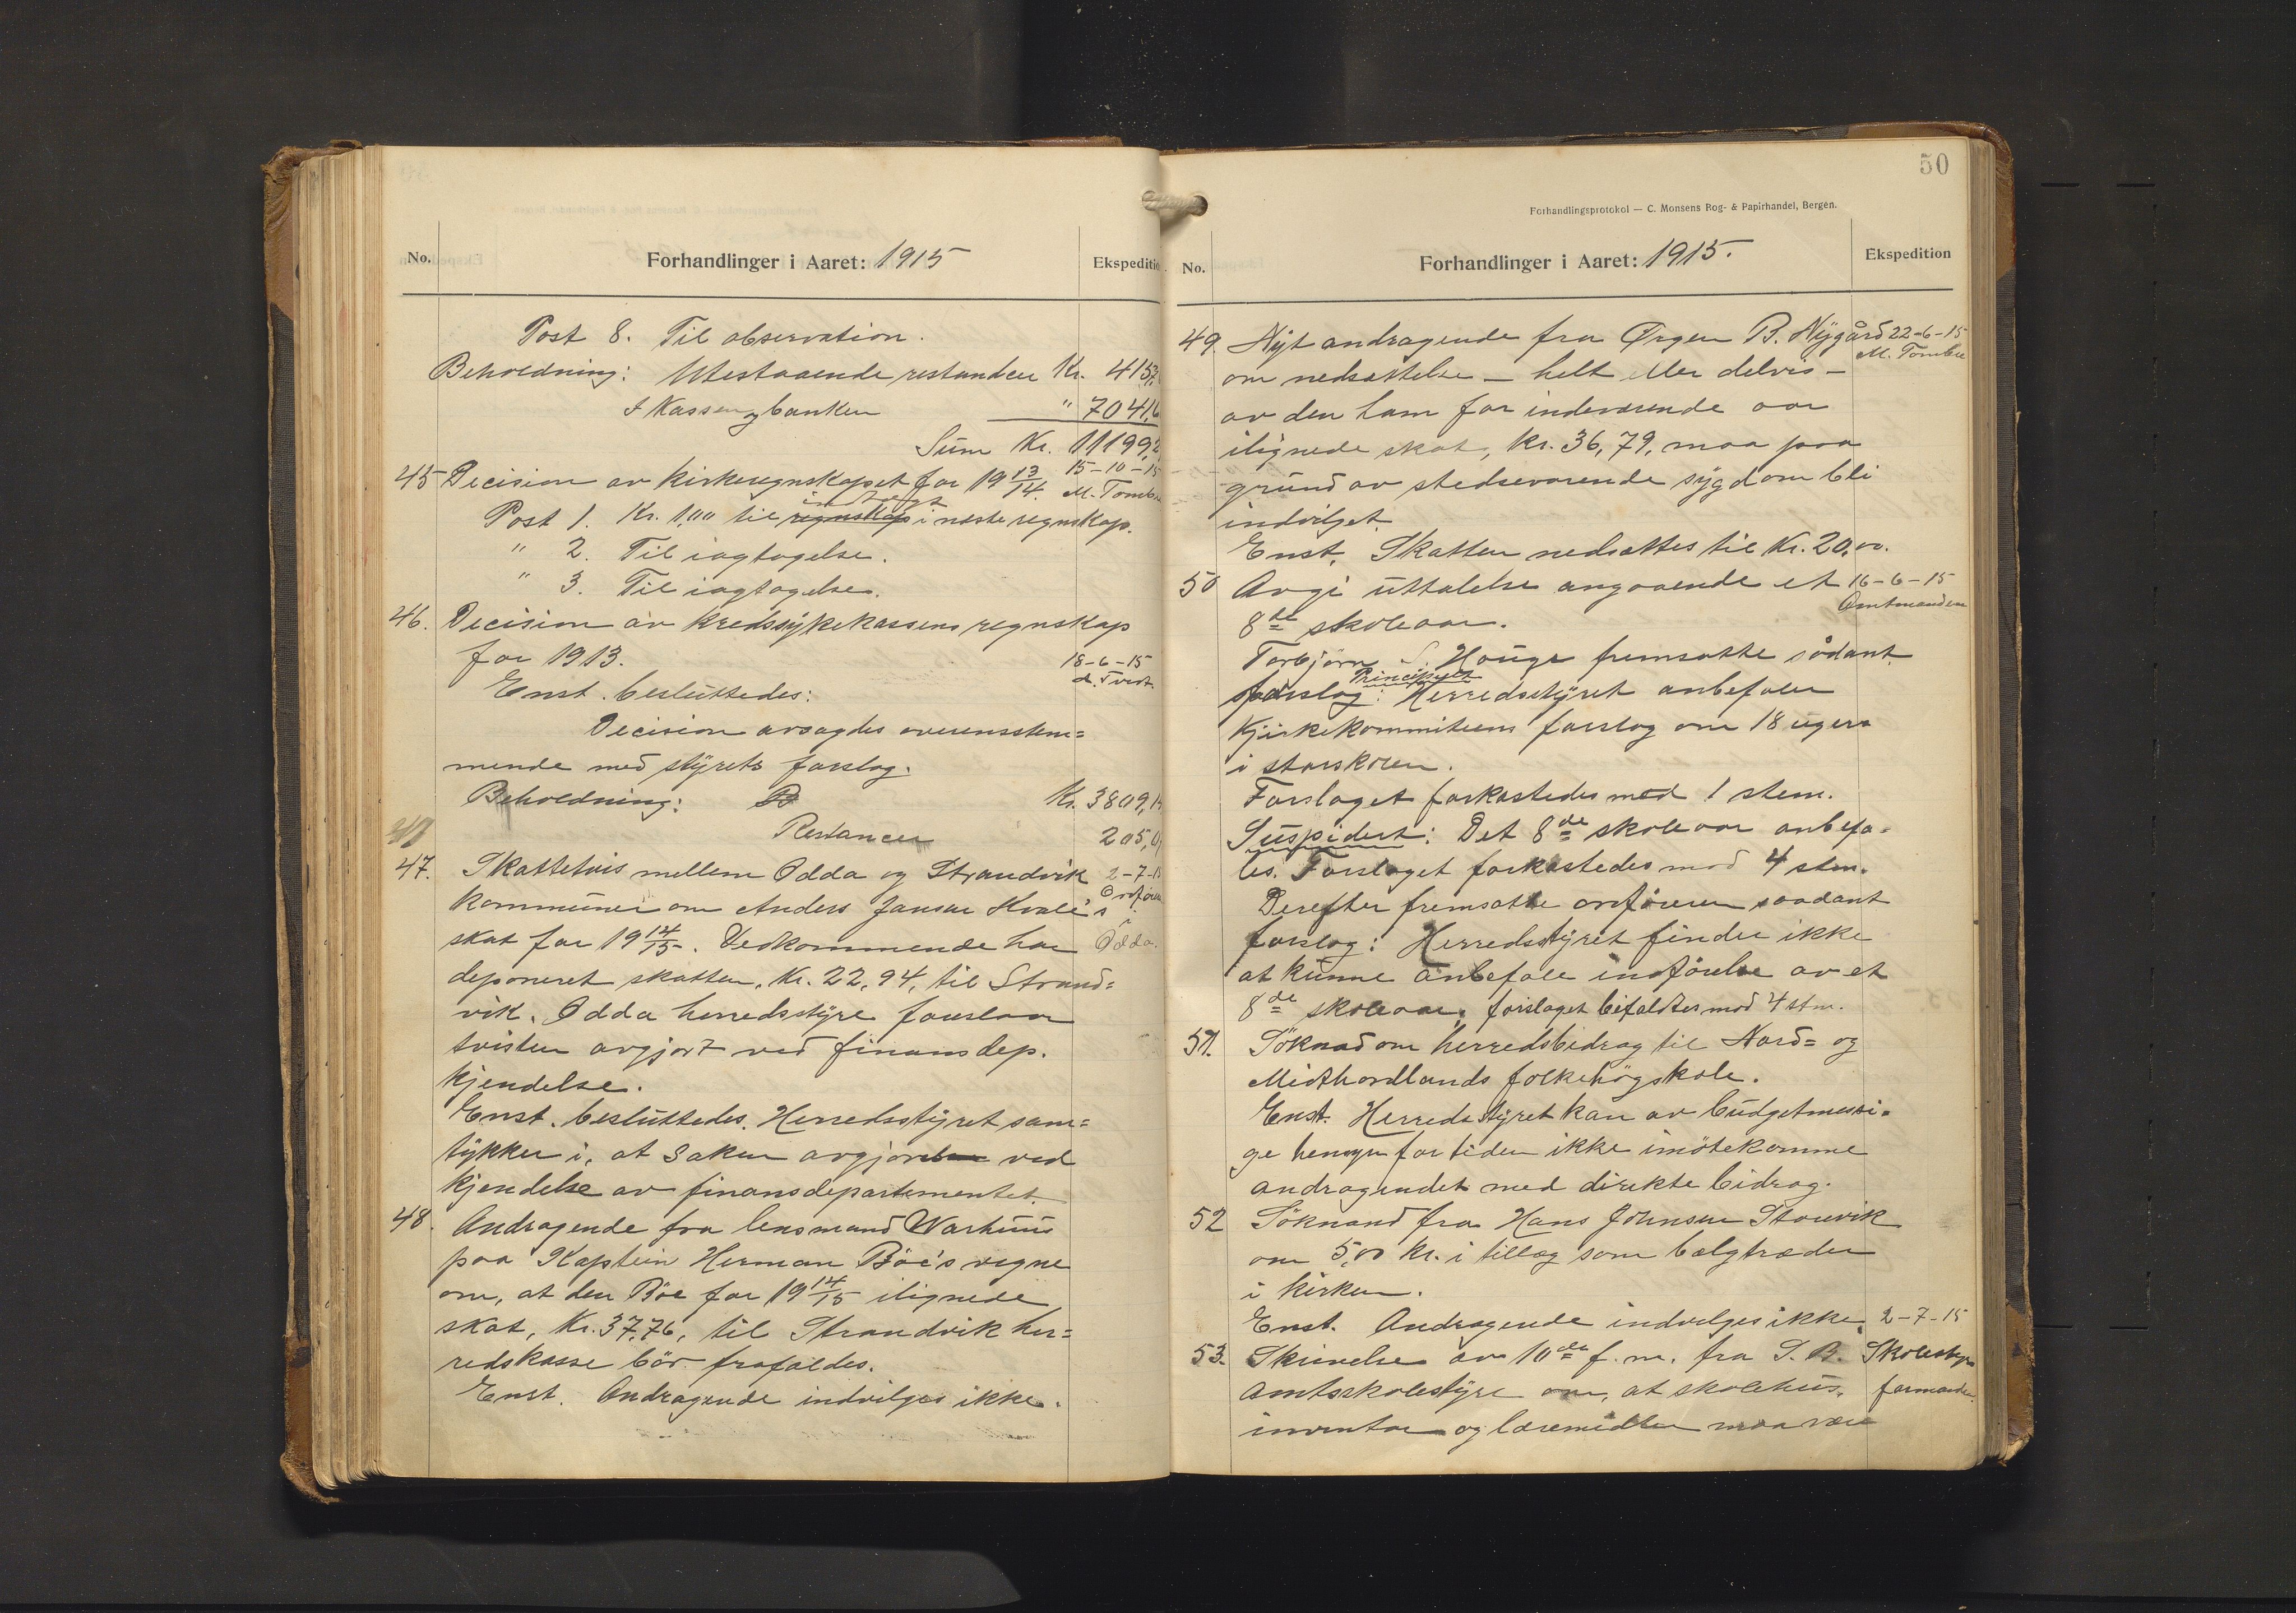 No.
Forhandlinger i Aaret: 1915
Ekspeditio
Post 8. Til observation.
Beholdning: Utestaaende restancer Kr. 415
I Kassen og banken " 7041,6
Sum Kr. 11199,2
45 Decision av kirkeregnskapet for 19 13/14. 15-10-15
M. Tombre
Post 1. Kr. 1,00 til regnskap indtægt i næste regnskap.
" 2. Til iagtagelse.
" 3. Til iagtagelse.
46. Decision av Kredssykekassens regnskap
for 1913. 18-6-15
Enst. besluttedes:
Decision avsagdes overensstem=
mende med styrets forslag.
Beholdning: Kr. 3809,1
Restancer 205,0
47. Skattetvis mellem Odda og Strandvik 2-7-15
kommuner om Anders Jansen Kvale's Ordføreren i
skat for 19 14/15. Vedkommende har Odda.
deponeret skatten, Kr. 22,94, til Strand=
vik. Odda herredsstyre foreslaar
tvisten avgjort ved finansdep.
kjendelse.
Enst. besluttedes. Herredsstyret sam=
tykker i, at saken avgjøres ved
kjendelse av finansdepartementet.
48. Andragende fra lensmand Warhuus
paa Kaptein Herman Böe's vegne
om, at den Böe for 19 14/15 ilignede
skat, Kr. 37,76, til Strandvik her=
redskasse bör frafaldes.
Enst. Andragende indvilges ikke.
50
Forhandlingsprotokol — C. Monsens Bog- & Papirhandel, Bergen.
No.
Forhandlinger i Aaret: 1915.
Ekspedition
49. Nyt andragende fra Ørgen B. Nygård 22-6-15
M. Tombre
om nedsættelse – helt eller delvis –
av den ham for indeværende aar
ilignede skat, kr. 36,79, maa paa
grund av stedseværende sygdom bli
indvilget.
Enst. Skatten nedsættes til Kr. 20,00.
50 Avgi uttalelse angaaende et 16-6-15
Amtmanden
8de skoleaar.
Torbjörn S. Hauge fremsatte sådant
forslag: Principielt Herredsstyret anbefaler
Kjirkekommiteens forslag om 18 ugers
i storskolen.
Forslaget forkastedes mod 1 stem.
Suspidert: Det 8de skoleaar anbefa=
les. Forslaget forkastedes mod 4 stem.
Derefter fremsatte ordföreren saadant
forslag: Herredsstyret finder ikke
at kunne anbefale indförelse av et
8de skoleaar; forslaget bifaldtes mod 4 stm.
51. Söknad om herredsbidrag til Nord= og
Midthordlands folkehögskole.
Enst. Herredsstyret kan av budgetmessi=
ge hensyn for tiden ikke imötekomme
andragendet med direkte bidrag.
52 Söknad fra Hans Johnsen Storvik
om 5,00 kr. i tillæg som bælgtræder
i kirken.
Enst. Andragende indvilges ikke. 2-7-15
53. Skrivelse av 10de f. m. fra S. B. Skolestyr
Amtsskolestyre om, at skolehus, formanden
inventar og læremidler maa være